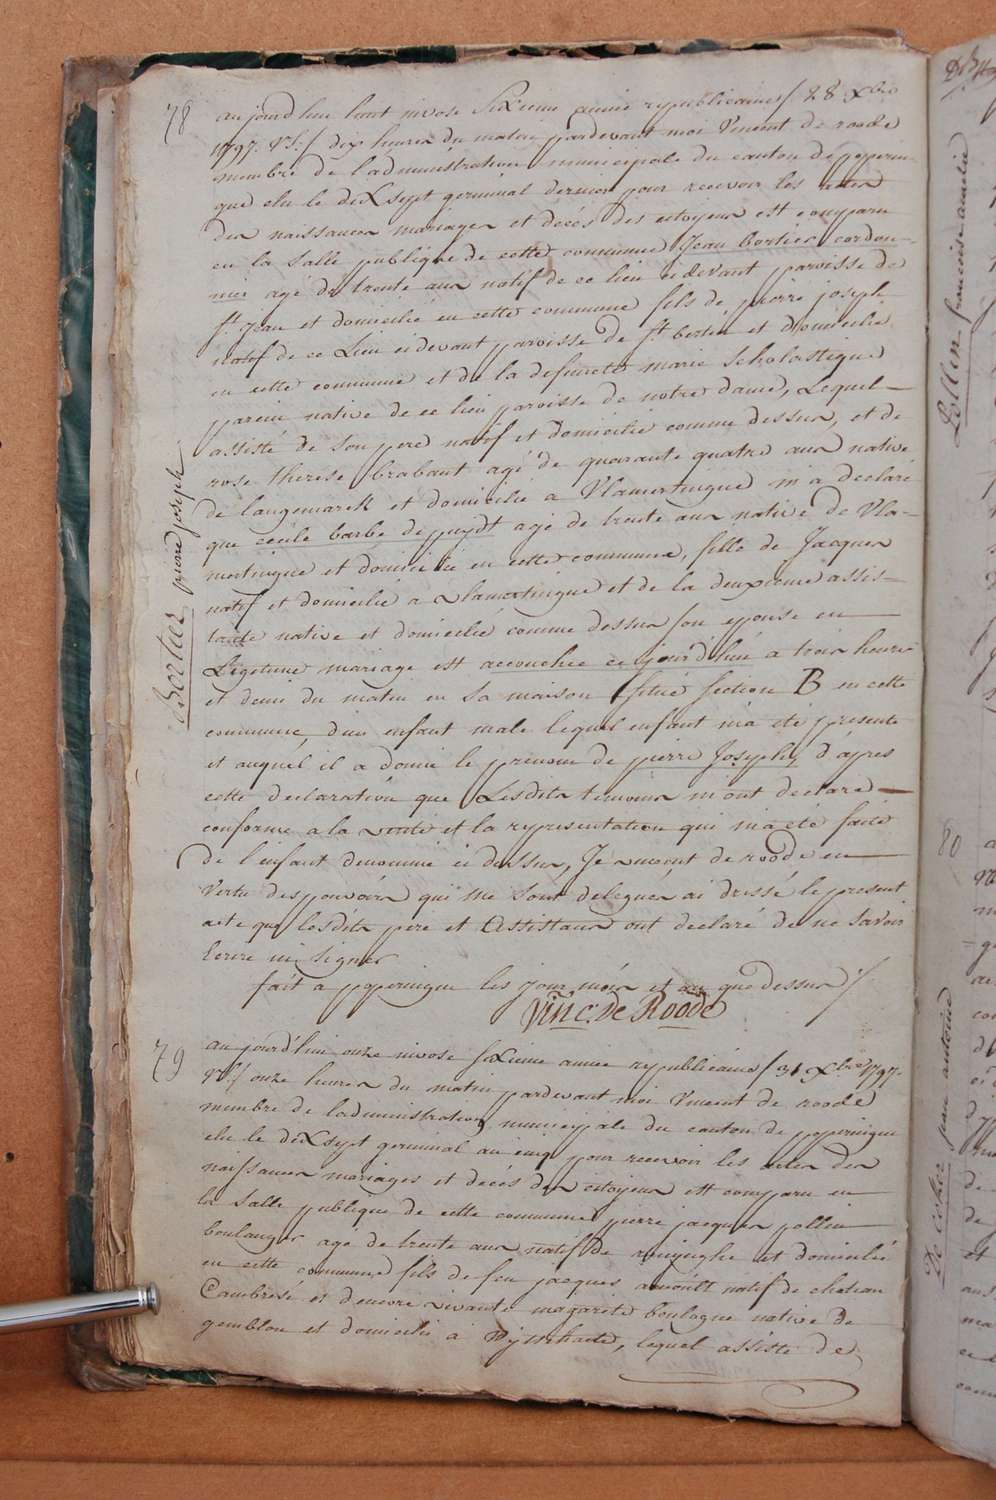 78
aujourd'hui huit nivose Sixieme année republicaine / 28 Xbre
1797. VS: / dix heures du matin pardevant moi Vincent de roode
membre de l'administration municipale du canton de poperin-
gue elu le dix sept germinal dernier pour recevoir les actes
des naissances mariages et décés des citoyens est comparu
en la Salle publique de cette commune Jean bortier cordon-
nier agé de trente ans natif de ce lieu cidevant paroisse de
st. Jean et domicilié en cette commune fils de pierre joseph
natif de ce Lieu cidevant paroisse de st bertin et domicilié
en cette commune et de la defuncte marie Scholastique
native de ce lieu paroisse de notre dame, Lequel
assisté de son pere natif et domicilié comme dessus, et de
rose therese brabant agé de quarante quatre ans native
de langemarck et domicilié a Vlamertingue m'a declaré
que cecile barbe depuydt agé de trente ans native de Vla-
mertingue et domicilié en cette commune, fille de Jacques
natif et domicilié a vlamertingue et de la deuxieme assis-
tante native et domicilié comme dessus son epouse en
Legitime mariage est accouchée ce jourd'hui a trois heures
et demi du matin en sa maison situé section B en cette
commune, d'un enfant male lequel enfant m'a eté presenté
et auquel il a donné le prenom de pierre Joseph, d'après
cette declaration que Lesdits temoins m'ont declaré
conforme a la verité et la representation qui m'a eté faite
de l'enfant denommé ci dessus, Je vincent de roode en
Vertu des pouvoirs qui me sont delegués ai dressé le present
acte que lesdits pere et assistans ont declaré de ne savoir
Ecrire ni signer
fait a poperingue les jour mois et an que dessus /
Vinc. De Roode
Bortier pierre joseph
79
aujourd'hui onze nivose sixieme année republicaine / 31 Xbre 1797.
VS: / onze heures du matin pardevant moi Vincent de roode
membre de ladministration municipale du canton de poperingue
elu le dix sept germinal an cinq pour recevoir les actes des
naissances mariages et décés des citoyens est comparu en
la Salle publique de cette commune pierre jacques pollin
boulanger agé de trente ans natif de et domicilié
en cette commune fils de feu jacques natif de chateau
Cambresé et d'encore vivante magarite boulogne native de
gemblou et domicilié à lequel assisté de
Pollin françoise amelie
80
De coker jean antoine